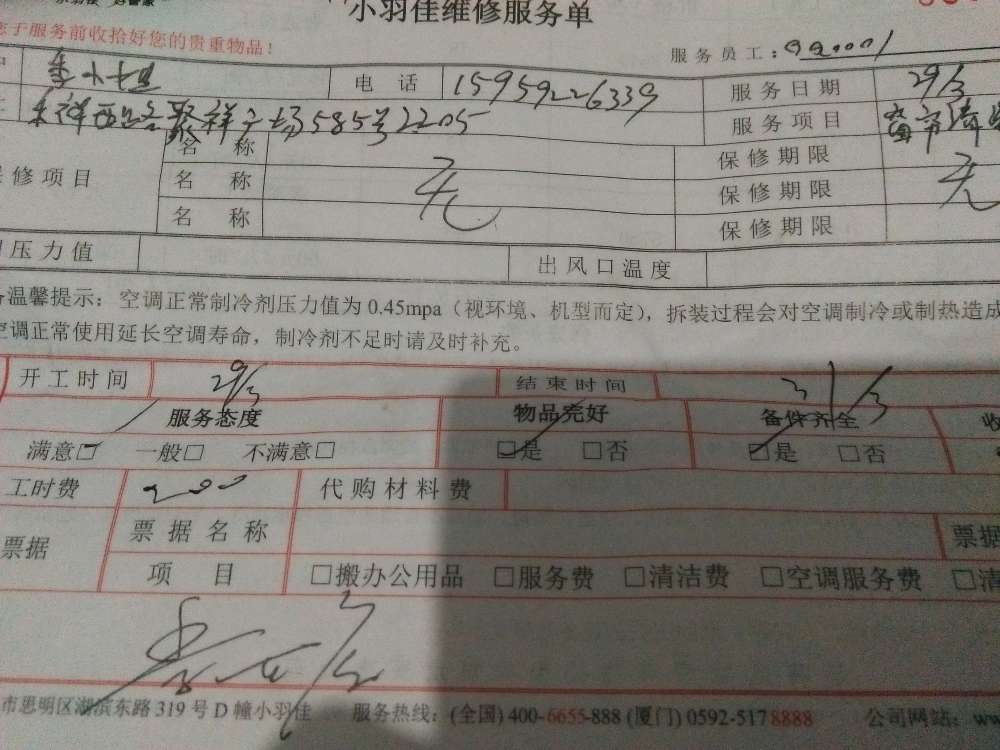 小羽佳维修服务单
于服务前收拾好您的贵重物品!
服务员工: 990001
电话 15959226339 服务日期 29/3
祥西路聚祥广场585号2205 服务项目
名称 保修期限
修项目 名称 无 保修期限 无
名称 保修期限
压力值 出风口温度
温馨提示: 空调正常制冷剂压力值为 0.45mpa (视环境、机型而定), 拆装过程会对空调制冷或制热造成
空调正常使用延长空调寿命, 制冷剂不足时请及时补充。
开工时间 29/3 结束时间 31/3
服务态度 物品完好 备件齐全 收
满意□ 一般□ 不满意□ □是 □否 □是 □否
工时费 200 代购材料费
票据 票据名称 票据
项目 □搬办公用品 □服务费 □清洁费 □空调服务费 □清
市思明区湖滨东路 319 号 D 幢小羽佳 服务热线: (全国) 400-6655-888 (厦门) 0592-5178888 公司网站: ww